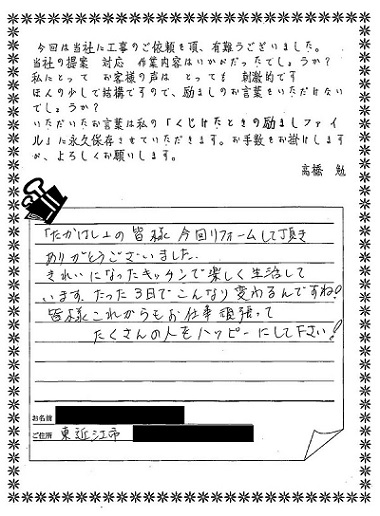 今回は当社に工事のご依頼を頂、有難うございました。
当社の提案　対応　作業内容はいかがだったでしょうか？
私にとって　お客様の声は　とっても　刺激的です
ほんの少しで結構ですので、励ましのお言葉をいただけない
でしょうか？
いただいたお言葉は私の「くじけたときの励ましファイ
ル」に永久保存させていただきます。お手数をお掛けします
が、よろしくお願いします。
高橋　勉
「たかはし」の皆様 今回リフォームして頂き
ありがとうございました。
きれいになったキッチンで楽しく生活して
います。たった3日でこんなり変わるんですね!
皆様これからもお仕事頑張って
たくさんの人をハッピーにして下さい!
お名前
ご住所 東近江市